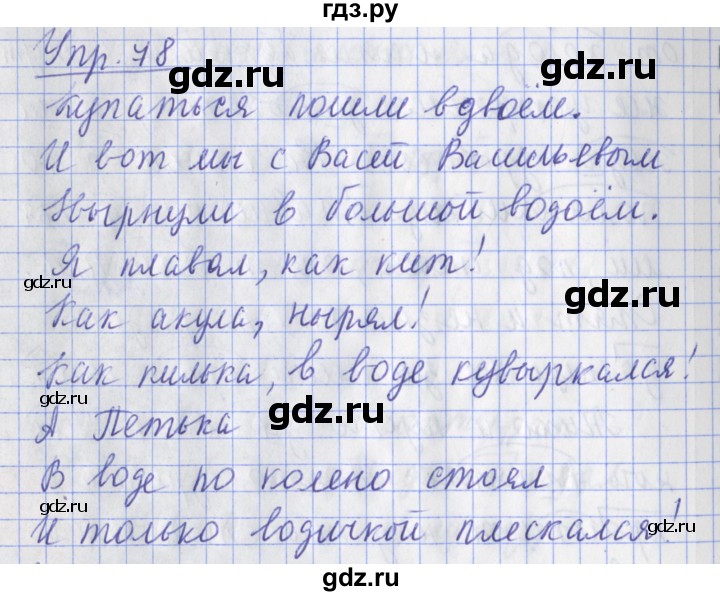 гдз.ру
Упр. 78
gdz.ru
купаться пошли вдвоём.
И вот мы с Васей Васильевым
Нырнули в большой водоём.
Я плавал, как кит!
gdz.ru
gdz.ru
Как акула, нырял!
gdz.ru
Как килька, в воде кувыркался!
gdz.ru
gdz.ru
А Петька
gdz.ru
В воде по колено стоял
И только водичкой плескался!
gdz.ru
gdz.ru
gdz.ru